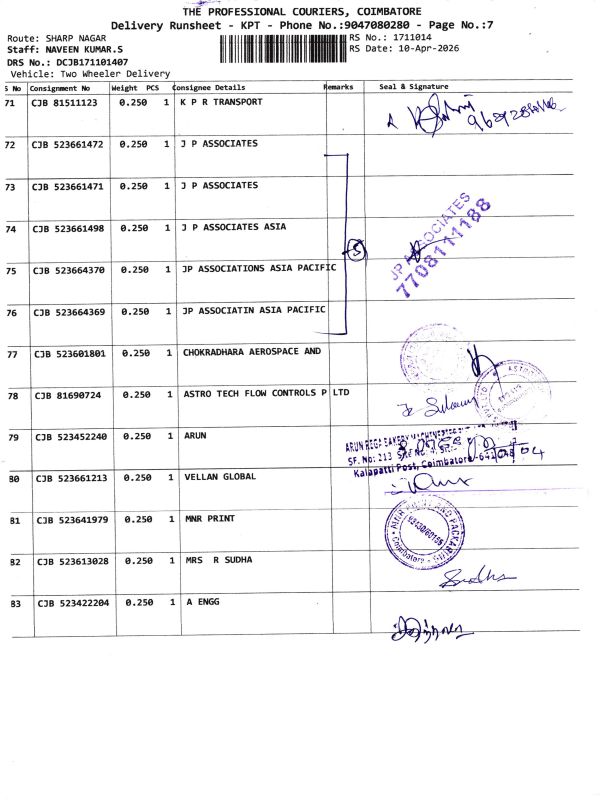 THE PROFESSIONAL COURIERS, COIMBATORE
Delivery Runsheet - KPT - Phone No.:9047080280 - Page No.:7
Route: SHARP NAGAR RS No.: 1711014
Staff: NAVEEN KUMAR.S RS Date: 10-Apr-2026
DRS No.: DCJB171101407
Vehicle: Two Wheeler Delivery
S No Consignment No Weight PCS Consignee Details Remarks Seal & Signature
71 CJB 81511123 0.250 1 K P R TRANSPORT
72 CJB 523661472 0.250 1 J P ASSOCIATES
73 CJB 523661471 0.250 1 J P ASSOCIATES
74 CJB 523661498 0.250 1 J P ASSOCIATES ASIA
JP ASSOCIATES
7708111188
5
75 CJB 523664370 0.250 1 JP ASSOCIATIONS ASIA PACIFIC
76 CJB 523664369 0.250 1 JP ASSOCIATIN ASIA PACIFIC
77 CJB 523601801 0.250 1 CHOKRADHARA AEROSPACE AND
78 CJB 81690724 0.250 1 ASTRO TECH FLOW CONTROLS P LTD
79 CJB 523452240 0.250 1 ARUN
SF. No: 213
Kalapatti Post, Coimbatore
80 CJB 523661213 0.250 1 VELLAN GLOBAL
81 CJB 523641979 0.250 1 MNR PRINT
82 CJB 523613028 0.250 1 MRS R SUDHA
Sudha
83 CJB 523422204 0.250 1 A ENGG